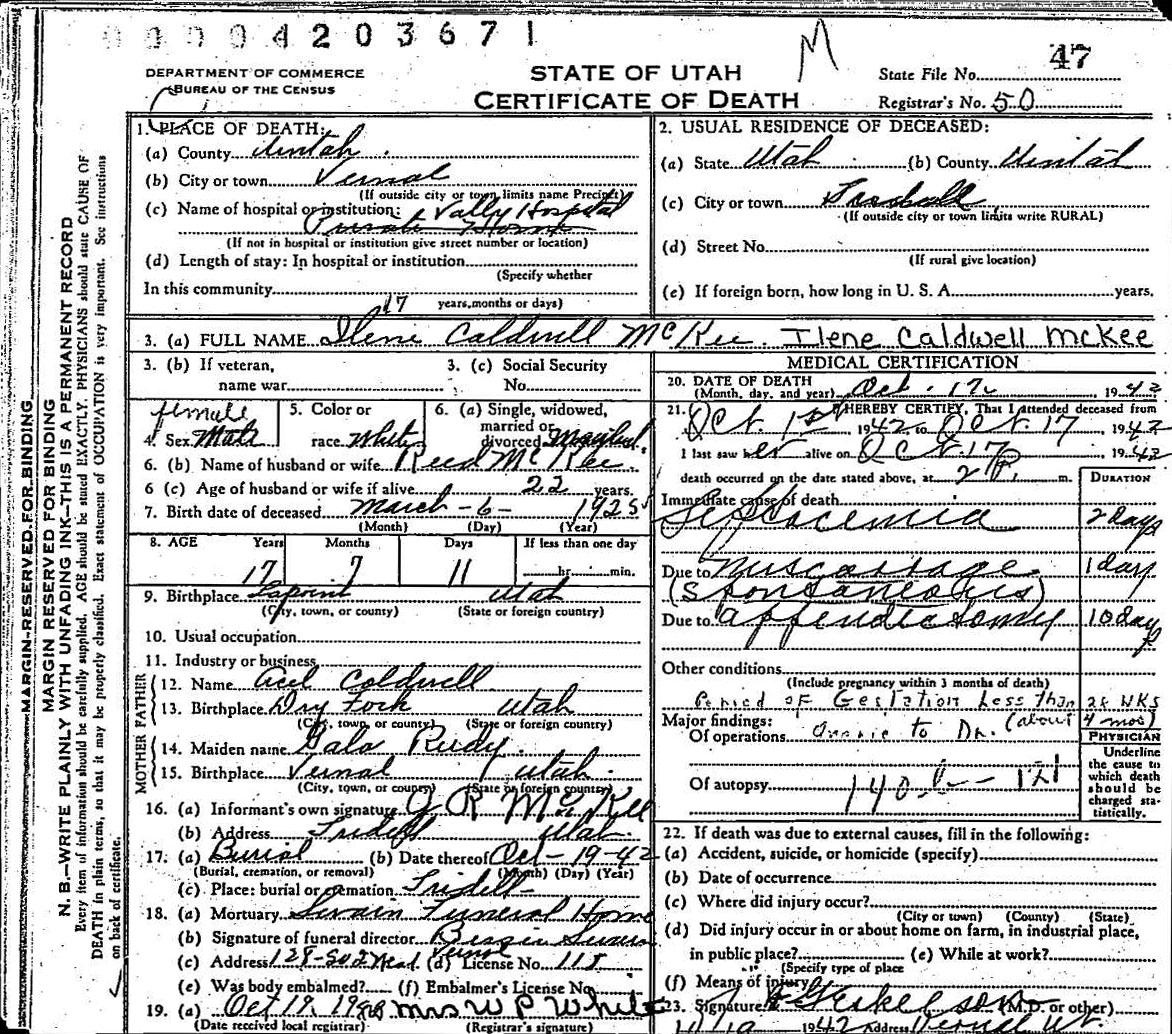 00004203671
M
47
DEPARTMENT OF COMMERCE
BUREAU OF THE CENSUS
STATE OF UTAH
CERTIFICATE OF DEATH
State File No.
Registrar's No. 50
MARGIN-RESERVED FOR BINDING
MARGIN RESERVED FOR BINDING
N. B.—WRITE PLAINLY WITH UNFADING INK—THIS IS A PERMANENT RECORD
Every item of information should be carefully supplied. AGE should be stated EXACTLY. PHYSICIANS should state CAUSE OF
DEATH in plain terms, so that it may be properly classified. Exact statement of OCCUPATION is very important. See instructions
on back of certificate.
1. PLACE OF DEATH:
(a) County Uintah
(b) City or town Vernal
(If outside city or town limits name Precinct)
(c) Name of hospital or institution: Vally Hospital
Private Home
(If not in hospital or institution give street number or location)
(d) Length of stay: In hospital or institution
(Specify whether
In this community 17
years, months or days)
2. USUAL RESIDENCE OF DECEASED:
(a) State Utah (b) County Uintah
(c) City or town
(If outside city or town limits write RURAL)
(d) Street No.
(If rural give location)
(e) If foreign born, how long in U. S. A. years.
3. (a) FULL NAME Ilene Caldwell McKee. Ilene Caldwell McKee
3. (b) If veteran,
name war
3. (c) Social Security
No.
female
4. Sex Male
5. Color or
race White
6. (a) Single, widowed,
married or
divorced Married
6. (b) Name of husband or wife Reed McKee
6 (c) Age of husband or wife if alive 22 years.
7. Birth date of deceased March - 6 - 1925
(Month) (Day) (Year)
8. AGE Years Months Days If less than one day
17 7 11 hr. min.
9. Birthplace Lapoint Utah
(City, town, or county) (State or foreign country)
10. Usual occupation
11. Industry or business
MOTHER FATHER
12. Name Acel Caldwell
13. Birthplace Dry Fork Utah
(City, town, or county) (State or foreign country)
14. Maiden name Gala Rudy
15. Birthplace Vernal Utah
(City, town, or county) (State or foreign country)
16. (a) Informant's own signature J R McKee
(b) Address Tridell Utah
17. (a) Burial (b) Date thereof Oct - 19 - 42
(Burial, cremation, or removal) (Month) (Day) (Year)
(c) Place: burial or cremation Tridell
18. (a) Mortuary Swain Funeral Home
(b) Signature of funeral director
(c) Address Vernal (d) License No. 118
(e) Was body embalmed? (f) Embalmer's License No.
19. (a) Oct 19, Mrs W P White
(Date received local registrar) (Registrar's signature)
MEDICAL CERTIFICATION
20. DATE OF DEATH
(Month, day, and year) Oct. 17 1942
21. I HEREBY CERTIFY, That I attended deceased from
Oct. 1st 1942 to Oct. 17 1942
I last saw her alive on Oct. 17 1942
death occurred on the date stated above, at 2 P. m.
DURATION
Immediate cause of death
Septicemia 2 days
Due to Miscarriage 1 day
(Spontaneous)
Due to appendictomy 10 days
Other conditions
(Include pregnancy within 3 months of death)
Period of Gestation Less Than 28 WKS
(about 4 mos)
Major findings:
Of operations to Dr.
Of autopsy
PHYSICIAN
Underline
the cause to
which death
should be
charged sta-
tistically.
22. If death was due to external causes, fill in the following:
(a) Accident, suicide, or homicide (specify)
(b) Date of occurrence
(c) Where did injury occur?
(City or town) (County) (State)
(d) Did injury occur in or about home on farm, in industrial place,
in public place? (e) While at work?
(Specify type of place
(f) Means of injury
23. Signature (M.D. or other)
1942 Address Vernal Ut.